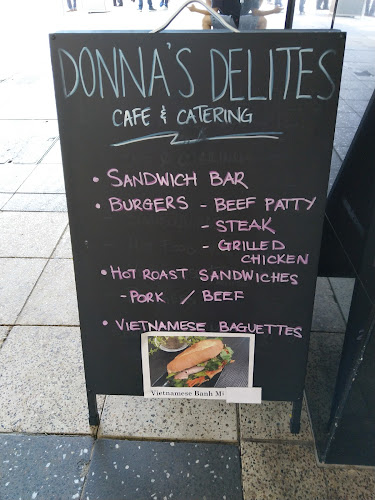 DONNA'S DELITES
CAFE & CATERING
• SANDWICH BAR
• BURGERS - BEEF PATTY
- STEAK
- GRILLED
CHICKEN
• HOT ROAST SANDWICHES
- PORK / BEEF
• VIETNAMESE BAGUETTES
Vietnamese Banh M